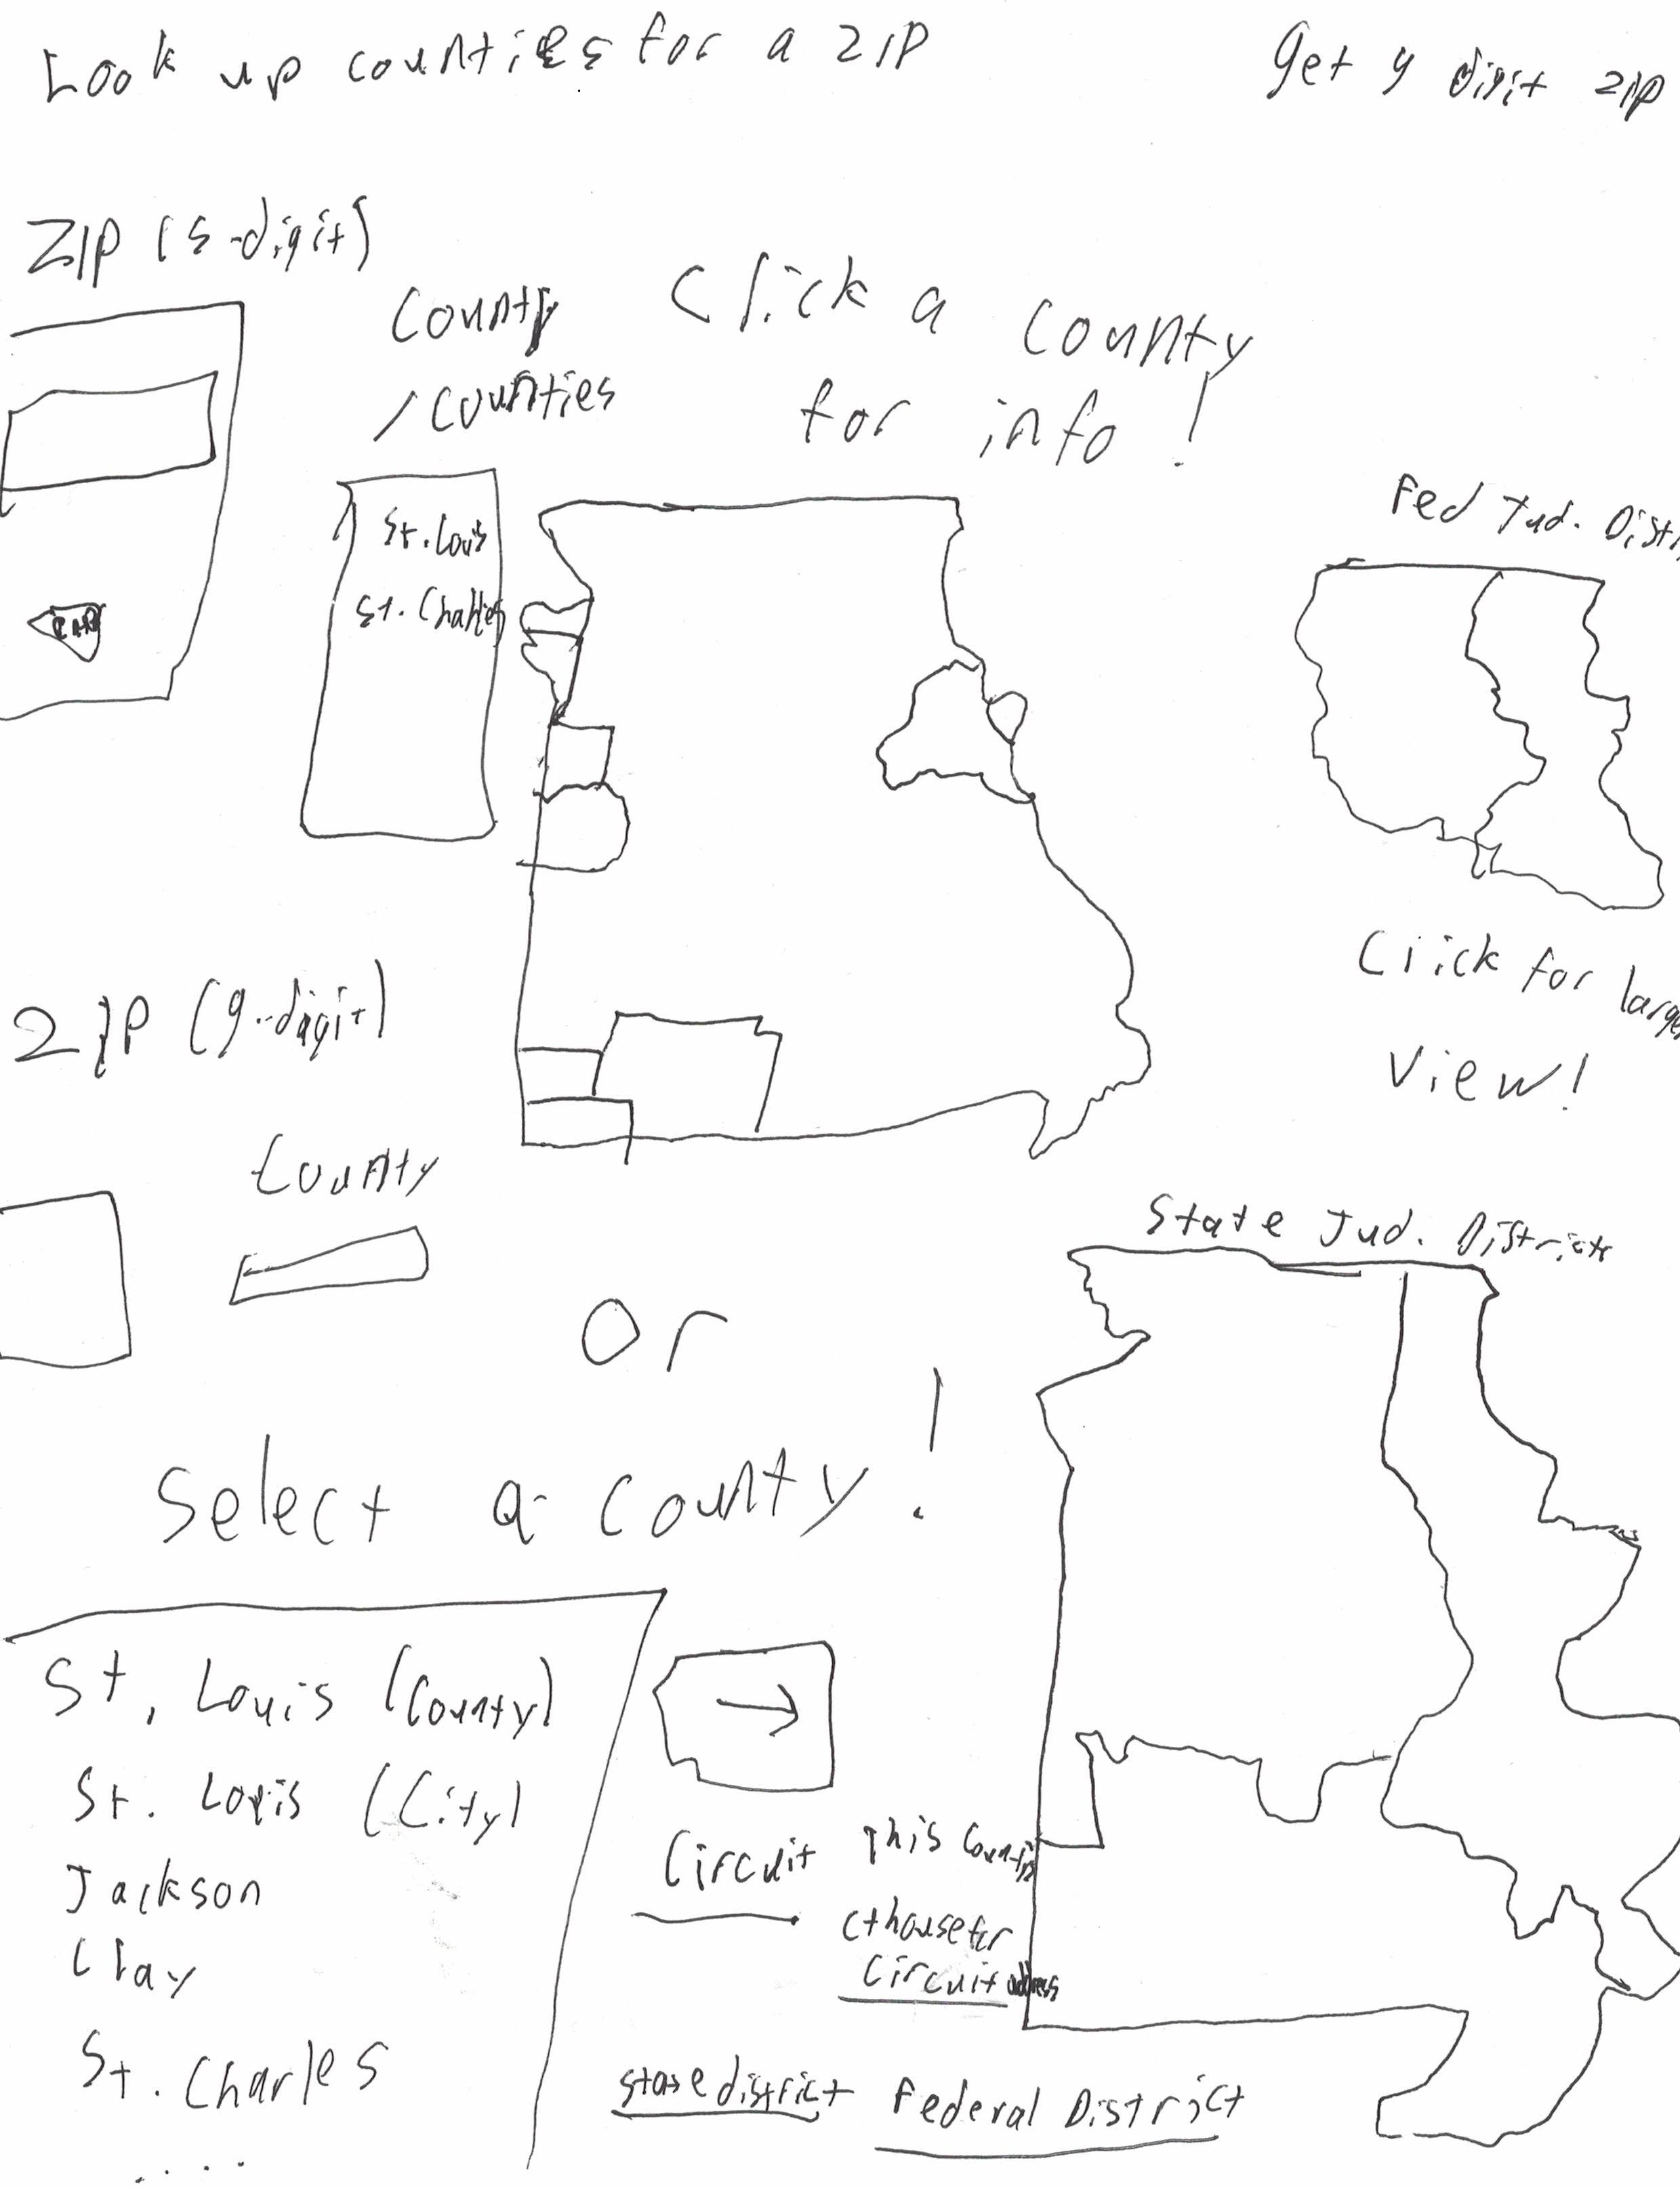 Look up counties for a ZIP
Get 9 digit zip
ZIP (5-digit)
County
/counties
Click a county
for info!
St. Louis
St. Charles
Fed Jud. Dist
Click for large
View!
ZIP (9-digit)
County
or
Select a county!
State Jud. Districts
St. Louis (County)
St. Louis (City)
Jackson
Clay
St. Charles
....
Circuit
This
cthouse for
circuit address
State district
Federal District